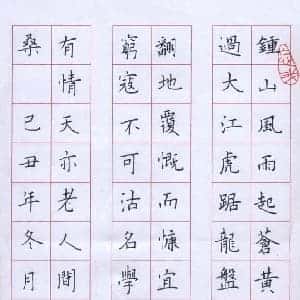 鍾山風雨起蒼黃
過大江虎踞龍盤
翻地覆慨而慷宜
窮寇不可沽名學
有情天亦老人間
桑 己丑年冬月